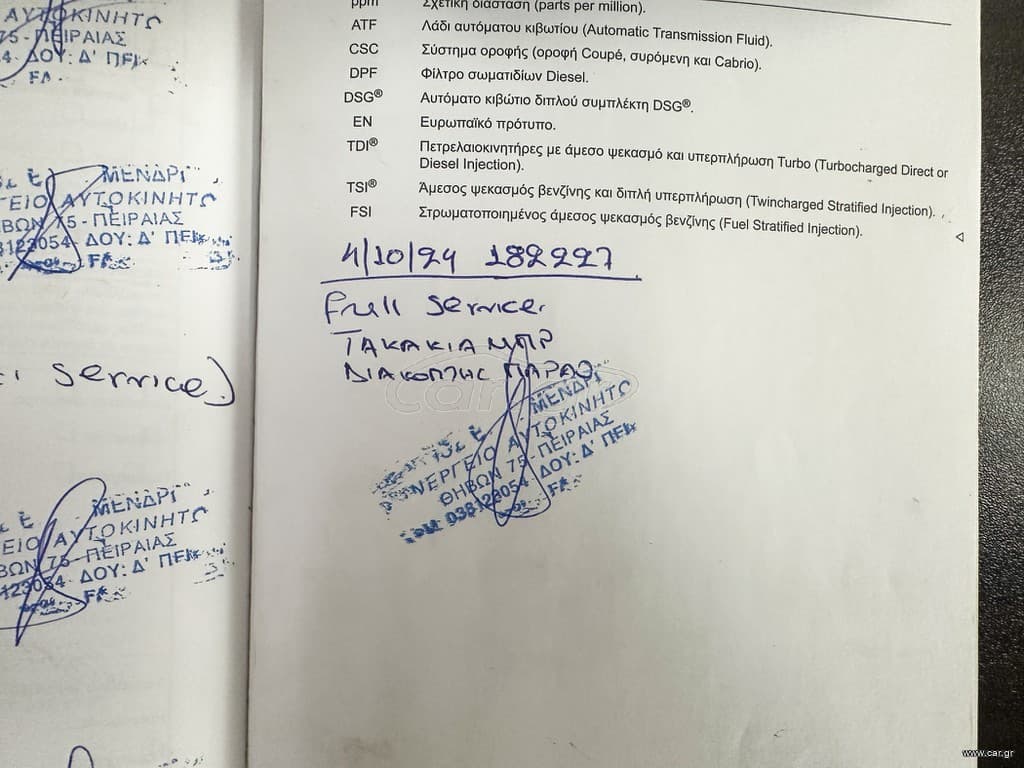 ΑΥΤΟΚΙΝΗΤΟ
75 - ΠΕΙΡΑΙΑΣ
ΔΟΥ: Δ' ΠΕΙ
ΜΕΝΔΡΙ
ΓΕΙΟ ΑΥΤΟΚΙΝΗΤΟ
ΗΒΩΝ 75 - ΠΕΙΡΑΙΑΣ
38123054 - ΔΟΥ: Δ' ΠΕΙ
service)
ΜΕΝΔΡΙ
ΕΙΟ ΑΥΤΟΚΙΝΗΤΟ
ΒΩΝ 75 - ΠΕΙΡΑΙΑΣ
123054 - ΔΟΥ: Δ' ΠΕΙ
ppm Σχετική διάσταση (parts per million).
ATF Λάδι αυτόματου κιβωτίου (Automatic Transmission Fluid).
CSC Σύστημα οροφής (οροφή Coupé, συρόμενη και Cabrio).
DPF Φίλτρο σωματιδίων Diesel.
DSG® Αυτόματο κιβώτιο διπλού συμπλέκτη DSG®.
EN Ευρωπαϊκό πρότυπο.
TDI® Πετρελαιοκινητήρες με άμεσο ψεκασμό και υπερπλήρωση Turbo (Turbocharged Direct or
Diesel Injection).
TSI® Άμεσος ψεκασμός βενζίνης και διπλή υπερπλήρωση (Twincharged Stratified Injection).
FSI Στρωματοποιημένος άμεσος ψεκασμός βενζίνης (Fuel Stratified Injection).
4/10/24 182227
Full service
ΤΑΚΑΚΙΑ ΜΠΡ
ΔΙΑΚΟΠΤΗΣ ΠΑΡΑΘ
ΜΕΝΔΡΙ
ΣΥΝΕΡΓΕΙΟ ΑΥΤΟΚΙΝΗΤΟ
ΘΗΒΩΝ 75 - ΠΕΙΡΑΙΑΣ
ΑΦΜ: 038123054 ΔΟΥ: Δ' ΠΕΙ
www.car.gr